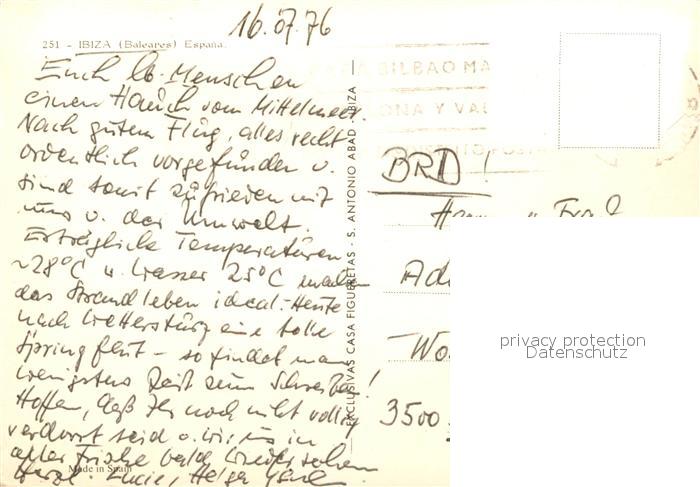 16.07.76
251 - IBIZA (Baleares) España.
Euch lb. Menschen
einen Hauch vom Mittelmeer.
Nach gutem Flug, alles recht
ordentlich vorgefunden u.
sind somit zufrieden mit
uns u. der Umwelt.
Erträgliche Temperaturen
~28°C u. Wasser 25°C machen
das Strandleben ideal. Heute
nach Wettersturz eine tolle
Springflut - so findet man
wenigstens Zeit zum Schreiben!
Hoffen, daß Ihr noch nicht völlig
verdorrt seid u. wir uns in
aller Frische bald wiedersehen
Herzl. Lucie, Helga
Made in Spain
EXCLUSIVAS CASA FIGUERETAS - S. ANTONIO ABAD - IBIZA
BILBAO MA
ONA Y VAL
BRD!
u. Fra
Ad
Wo
3500
privacy protection
Datenschutz